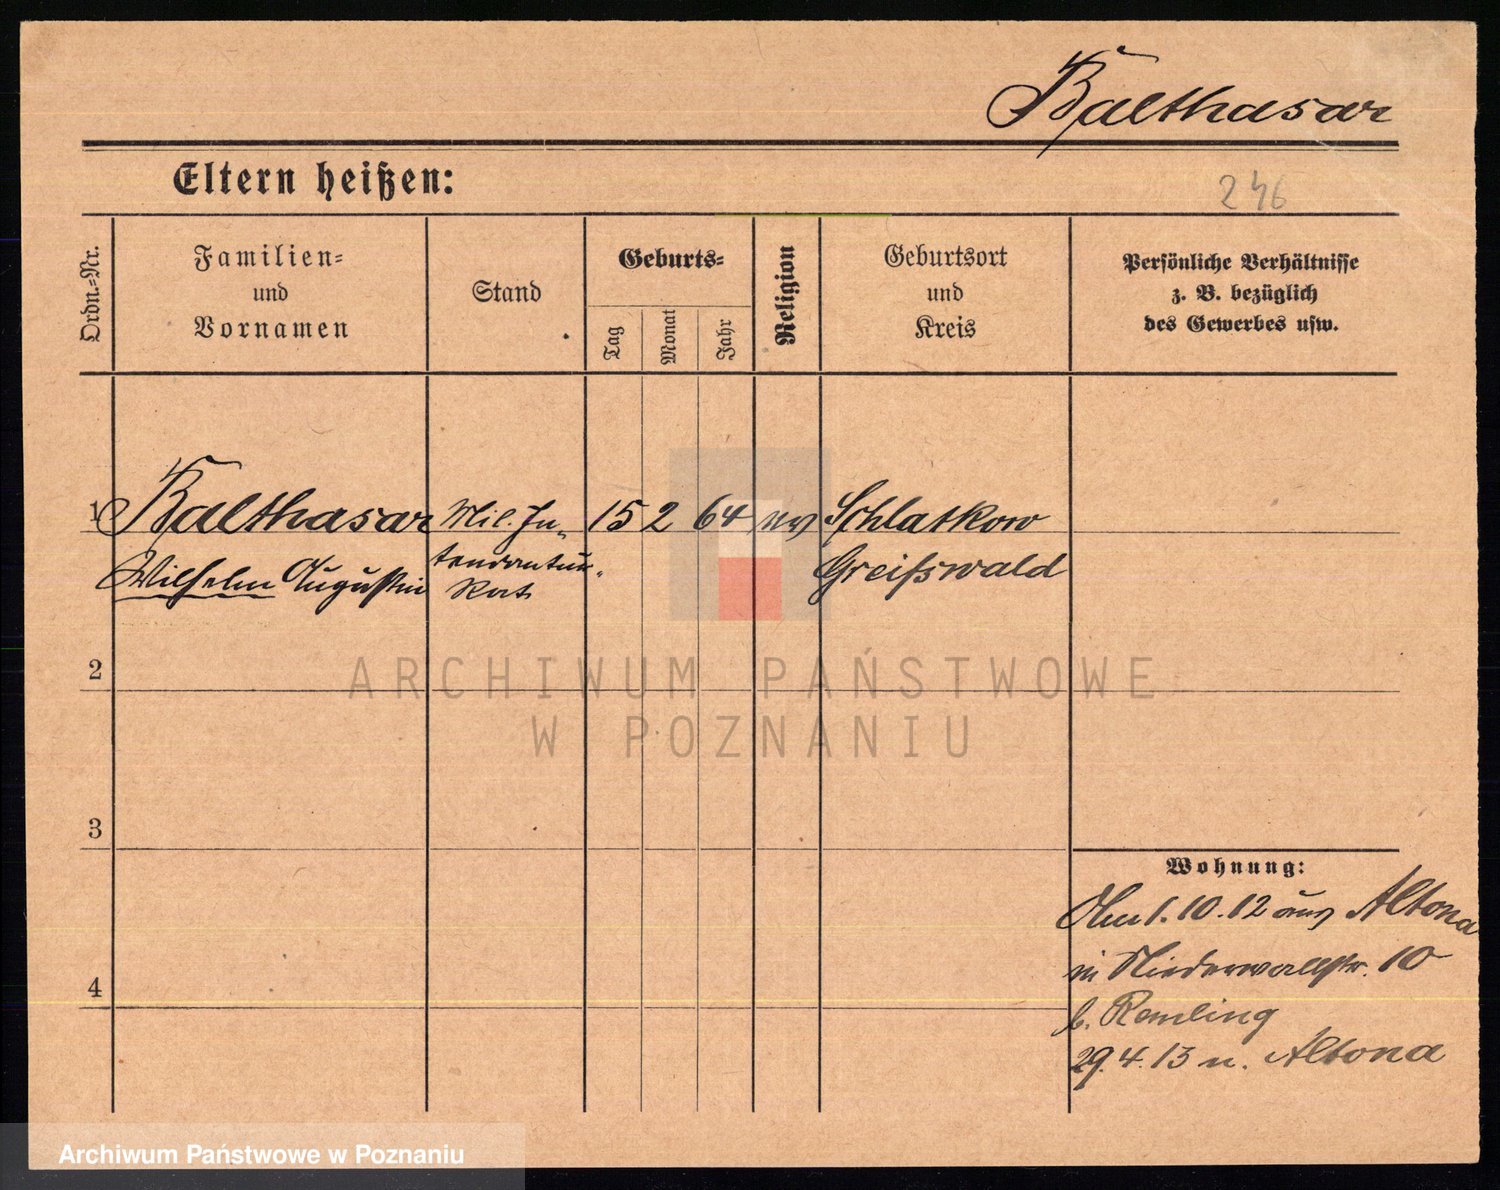 Balthasar
Eltern heißen:
246
Ordn.=Nr.
Familien=
und
Vornamen
Stand
Geburts=
Tag
Monat
Jahr
Religion
Geburtsort
und
Kreis
Persönliche Verhältnisse
z. B. bezüglich
des Gewerbes usw.
1 Balthasar Mil. In- 15 2 64 ev Schlatkow
Wilhelm Augustin tendantur- Rat Greifswald
2
3
4
Wohnung:
Am 1.10.12 aus Altona
in Niederwallstr. 10
b. Remling
29.4.13 n. Altona
ARCHIWUM PAŃSTWOWE
W POZNANIU
Archiwum Państwowe w Poznaniu